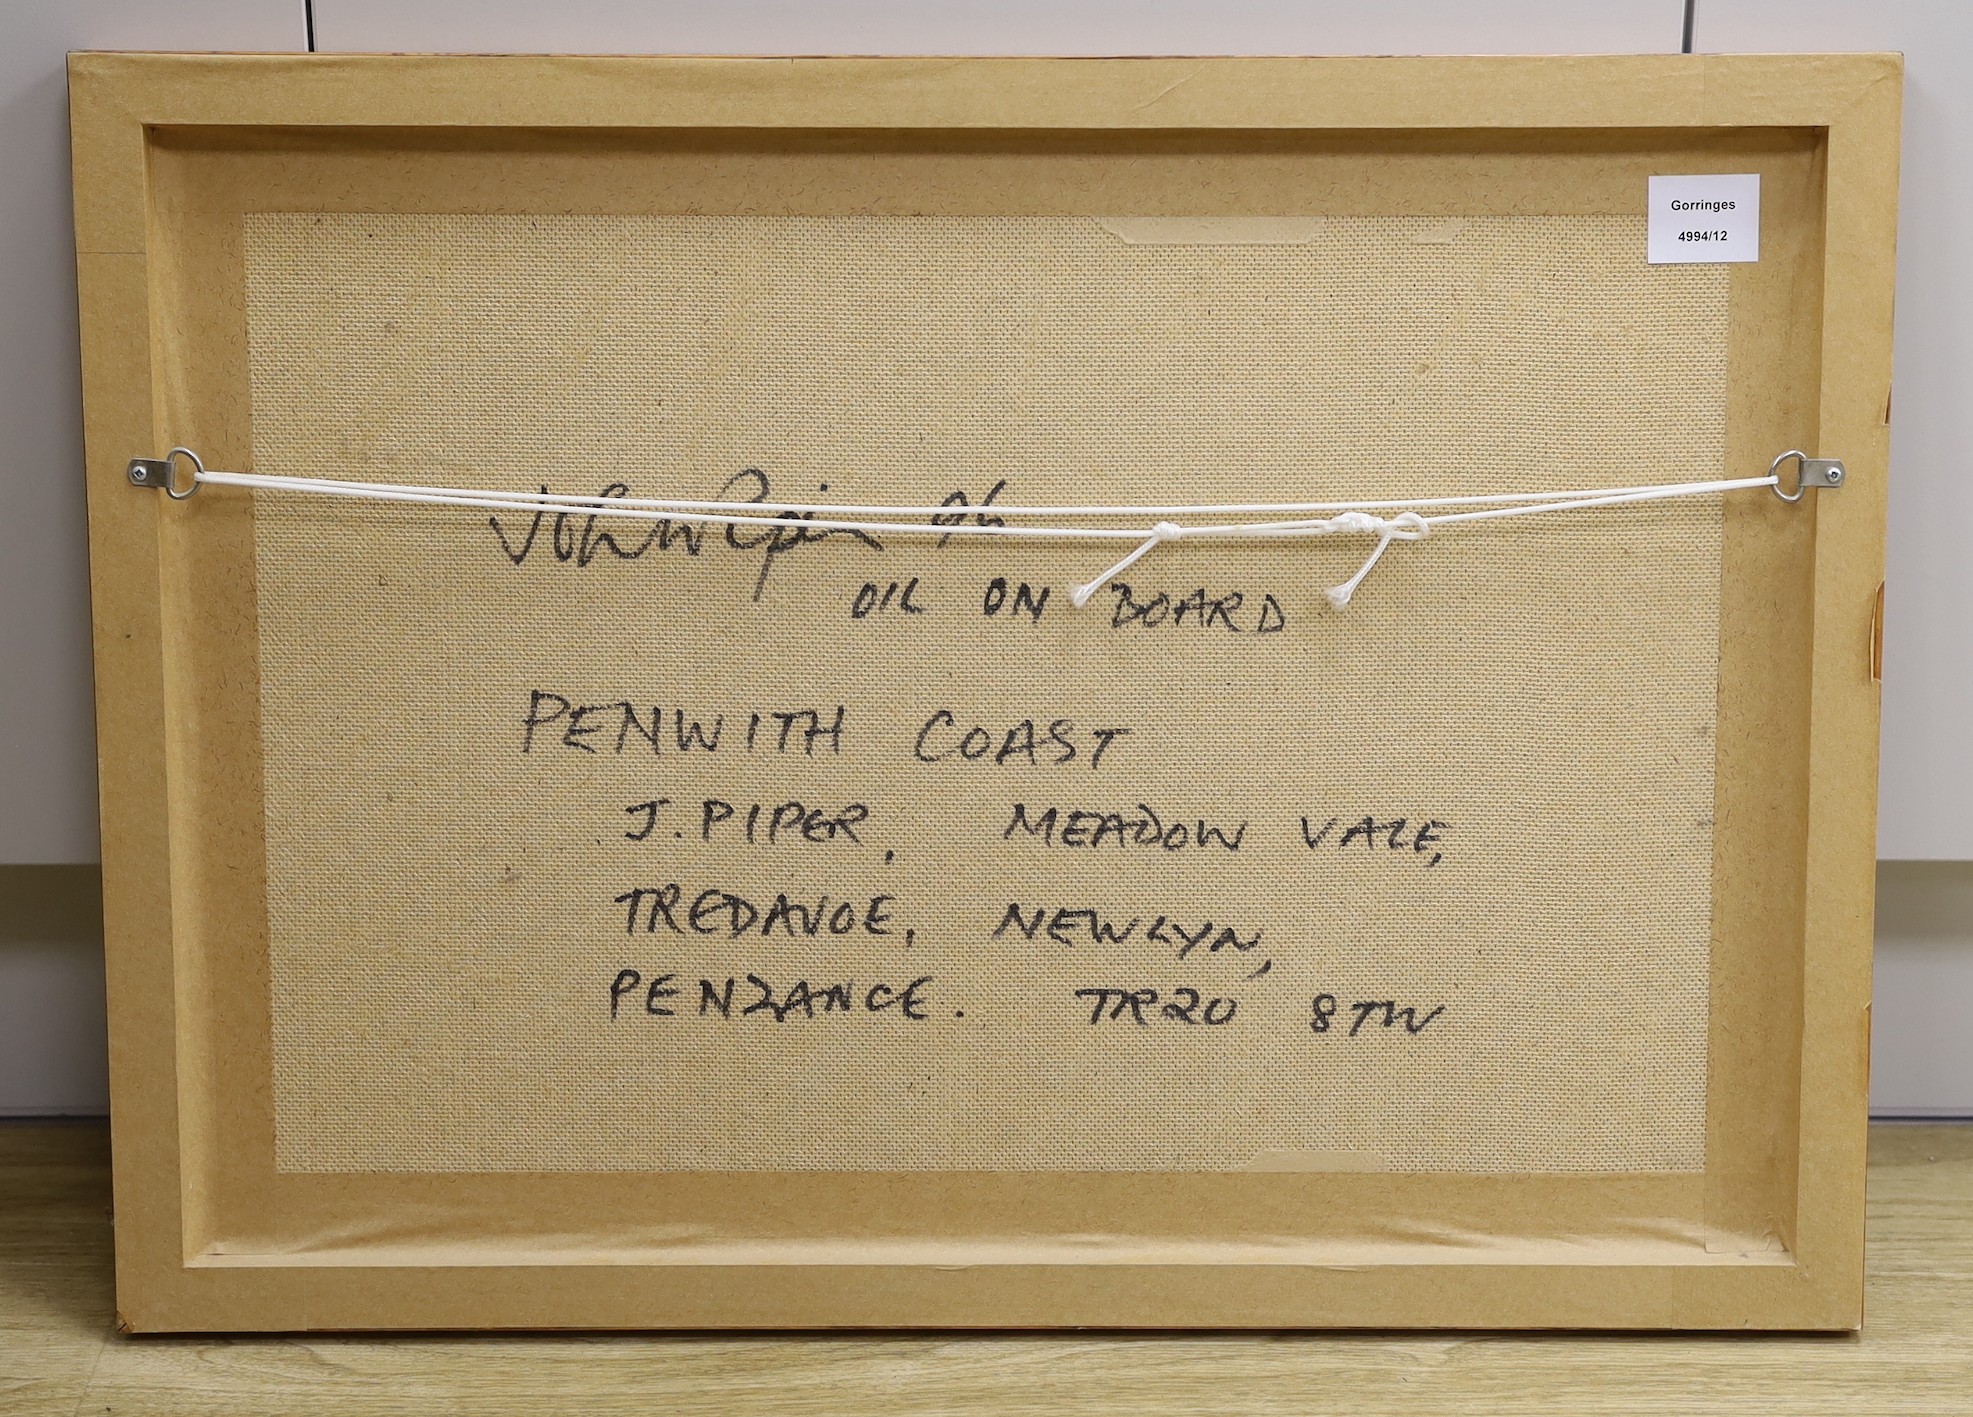 Gorringes
4994/12
John Piper 96
OIL ON BOARD
PENWITH COAST
J. PIPER, MEADOW VALE,
TREDAVOE, NEWLYN,
PENZANCE. TR20 8TW